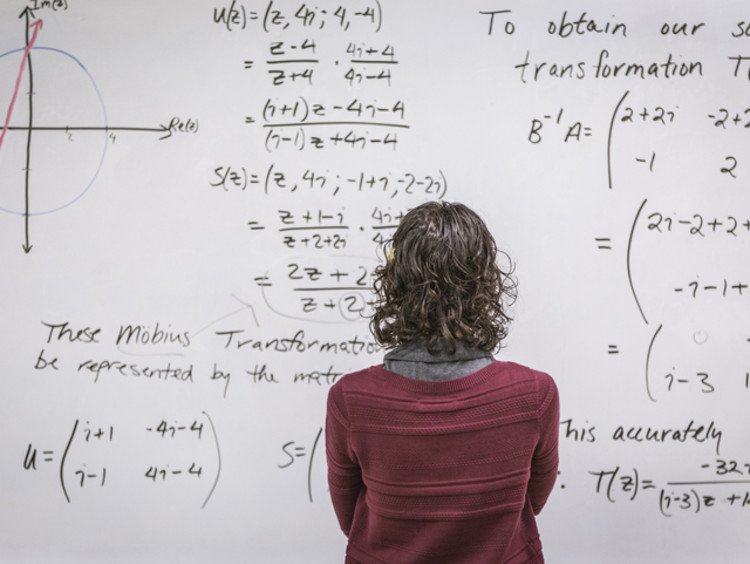 Im(z)
Re(z)
2 4
U(z)=(z, 4i; 4, -4)
= z-4/z+4 · 4i+4/4i-4
= (i+1)z-4i-4/(i-1)z+4i-4
S(z)=(z, 4i; -1+i, -2-2i)
= z+1-i/z+2+2i ·
= 2z+2
z+2
These Möbius Transformatio
be represented by the matri
U= (i+1 -4i-4
i-1 4i-4)
S= (
To obtain our so
transformation T(
B⁻¹A= (2+2i -2+2
-1 2
= (2i-2+2+
-i-1+
= (0
i-3 1
his accurately
: T(z)= -32i
(i-3)z +1